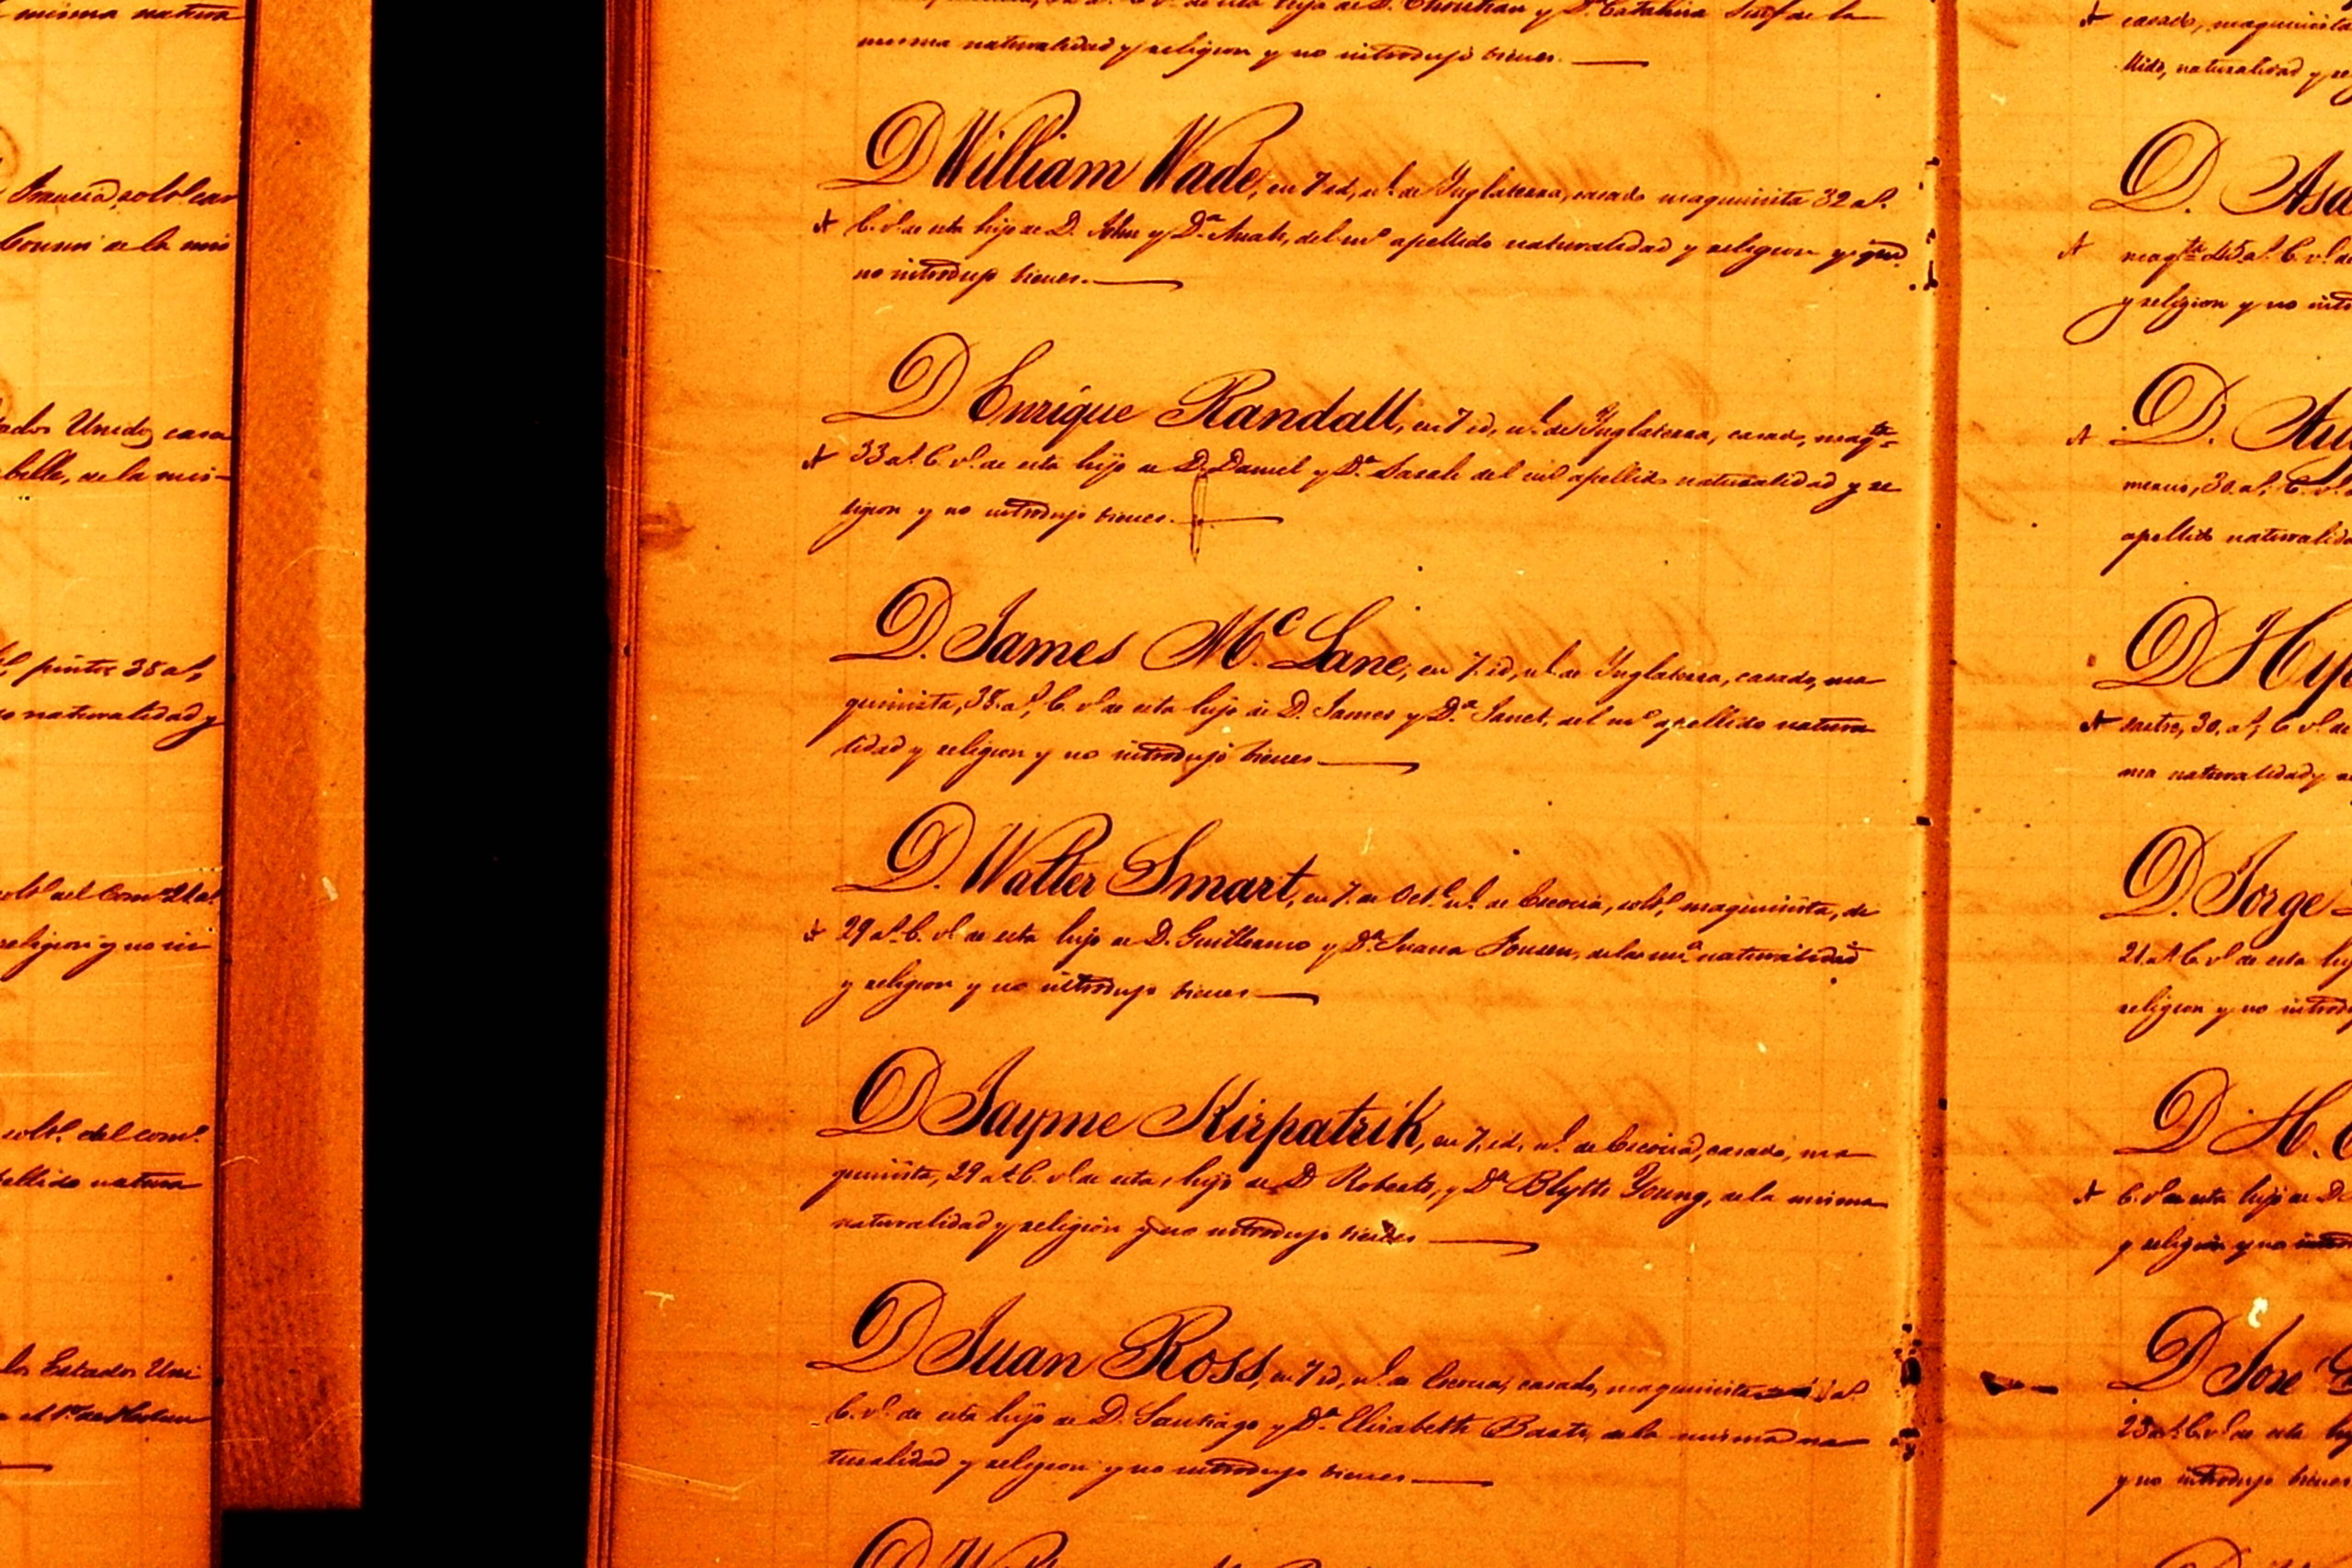 misma natura
Francia, solt.º car
Cousin de la mis
tados Unidos, casa
belle, de la mis-
pintor 38 a.ˢ,
naturalidad y
solt.º del Com.º 21 a.ˢ
religion y no in
solt.º del com.º
apellido natura
los Estados Uni
de esta hijo de D. Christian y D.ª Catalina de la
misma naturalidad y religion y no introdujo bienes.
D William Wade, en 7 id, n.l de Ynglaterra, casado maquinista 32 a.ˢ
C. v.º de esta hijo de D. John y D.ª Anah, del m.º apellido naturalidad y religion y que
no introdujo bienes.
D Enrique Randall, en 7 id, n.l de Ynglaterra, casado, maq.ta
33 a.ˢ C. v.º de esta hijo de D. Daniel y D.ª Sarah del m.º apellido naturalidad y re
ligion y no introdujo bienes.
D. James Mc. Lane, en 7. id, n.l de Ynglaterra, casado, ma
quinista, 38. a.ˢ, C. v.º de esta hijo de D. James y D.ª Janet, del m.º apellido natura
lidad y religion y no introdujo bienes
D. Walter Smart, en 7. de Oct.e n.l de Escocia, solt.º, maquinista, de
29 a.ˢ C. v.º de esta hijo de D. Guillermo y D.ª Juana Jousen, de la m.ª naturalidad
y religion y no introdujo bienes
D Jayme Kirpatrik, en 7, id, n.l de Escocia, casado, ma
quinista, 29 a.ˢ C. v.º de esta, hijo de D Roberto, y D.ª Blyth Young, de la misma
naturalidad y religion y no introdujo bienes
D Juan Ross, en 7 id, n.l de Escocia, casado, maquinista a.ˢ
C. v.º de esta hijo de D. Santiago y D.ª Elisabeth de la misma na
turalidad y religion y no introdujo bienes
casado, maquinista
llido, naturalidad y re
D. Asa
maq.ta 45 a.ˢ C. v.º de
y religion y no intr
D.
30. a.ˢ, C. v.º
apellido naturalida
D Hy
sastre, 30, a.ˢ, C v.º de
ma naturalidad y re
D. Jorge
21 a.ˢ C v.º de esta hij
religion y no introd
D H.
C. v.º de esta hijo de D
y religion y no
D Jose
23 a.ˢ C. v.º de esta hij
y no introdujo bienes